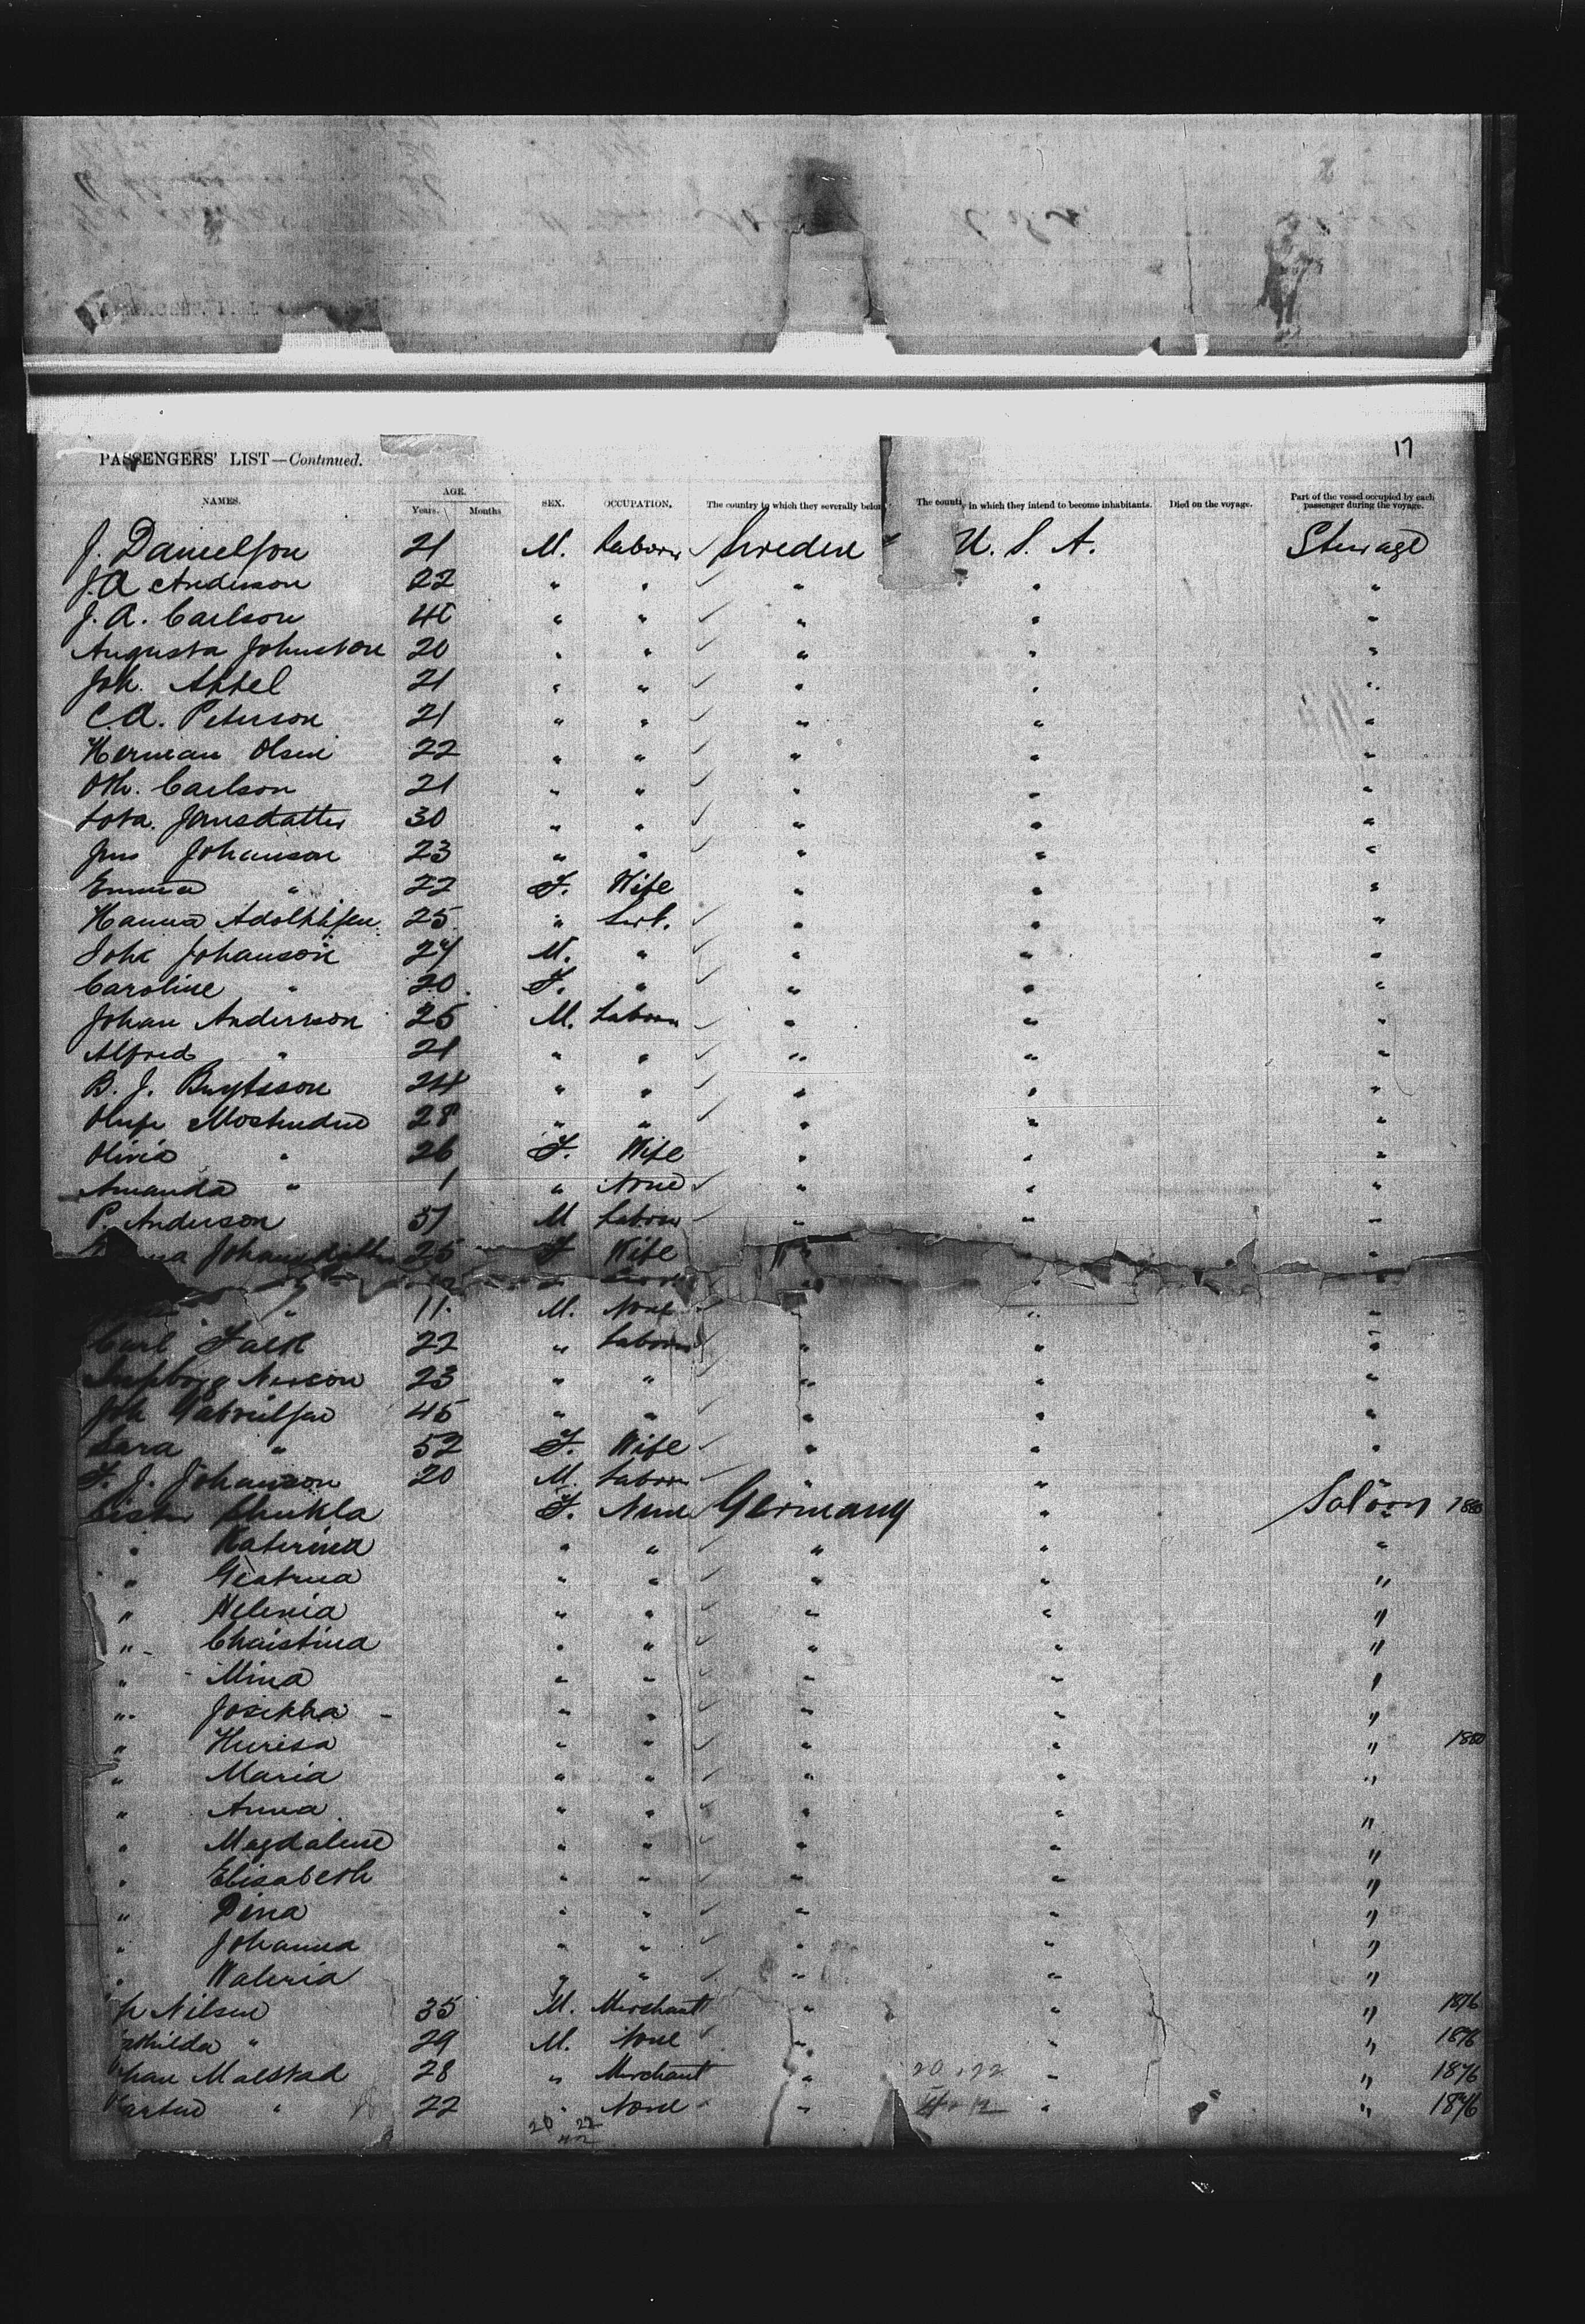 17
PASSENGERS' LIST—Continued.
NAMES. AGE. Years. Months SEX. OCCUPATION. The country to which they severally belon The count y in which they intend to become inhabitants. Died on the voyage. Part of the vessel occupied by each passenger during the voyage.
J. Danielson 21 M. Laborer Sweden U. S. A. Steerage
J. A Anderson 22 " " " " "
J. A. Carlson " " " " "
Augusta Johnston 20 " " " " "
Joh. Appel 21 " " " " "
C. A. Peterson 21 " " " " "
Herman Olsen 22 " " " " "
Oth. Carlson 21 " " " " "
Lova. Jansdatter 30 " " " " "
Jns Johanson 23 " " " " "
Emma " 22 F. Wife " " "
Hanna 25 " Sert. " " "
Johanson 24 M. " " " "
Caroline " 20 F. " " " "
Johan Anderson 25 M. Laborer " " "
Alfred " 21 " " " " "
B. J. 24 " " " " "
28 " " " " "
Olivia " 26 F. Wife " " "
Amanda " 1 " None " " "
P. Anderson 51 M Laborer " " "
25 F Wife " "
" 11. M. None " " "
Carl Falk 22 " Laborer " " "
23 " " " " "
Joh Gabrielsen 45 " " " " "
Sara " 52 F. Wife " " "
F. J. Johanson 20 M. Laborer " " "
Sister F. Nun Germany " Saloon 1880
" Katerina " " " " "
" " " " " "
" Helenia " " " " "
" Christina " " " " "
" Mina " " " " "
" Josepha " " " " "
" " " " " " 1880
" Maria " " " " "
" Anna " " " " "
" Magdalene " " " " "
" Elisabeth " " " " "
" Dina " " " " "
" Johanna " " " " "
" Waleria " " " " "
Nilsen 35 M. Merchant " " " 1876
athilda " 29 M. None " " " 1876
han Malstad 28 " Merchant " 20 + 22 " " 1876
" 22 " None " " " 1876
20 22